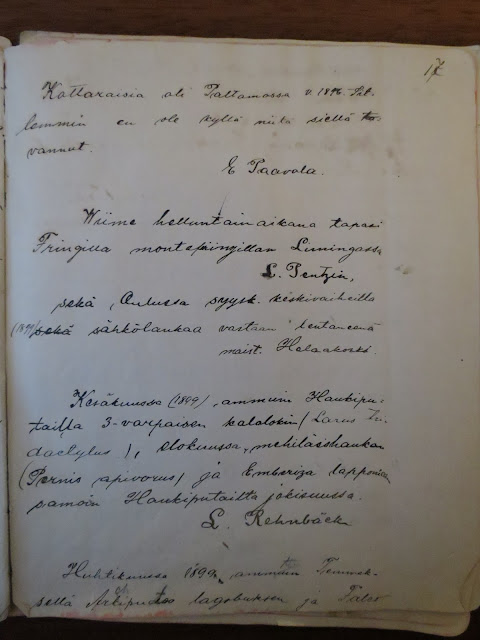 17
Kottaraisia oli Paltamossa v. 1896. Pit-
lemmin en ole kyllä niitä siellä ha-
vannut.
E Paavola.
Wiime helluntain aikana tapasi
Fringilla montefringillan Limingassa
L. Pentzin,
sekä, Oulussa syysk. keskivaiheilla
(1899) sekä sähkölankaa vastaan lentäneenä
maist. Helaakoski.
Kesäkuussa (1899), ammuin Haukipu-
tailla 3-varpaisen kalalokin (Larus tri-
dactylus), elokuussa, mehiläishaukan
(Pernis apivorus) ja Emberiza lapponica
samoin Haukiputailta jokisuussa.
L. Rehnbäck
Huhtikuussa 1899, ammuttiin Temmek-
sellä Arkipu lagobuksen ja Falco